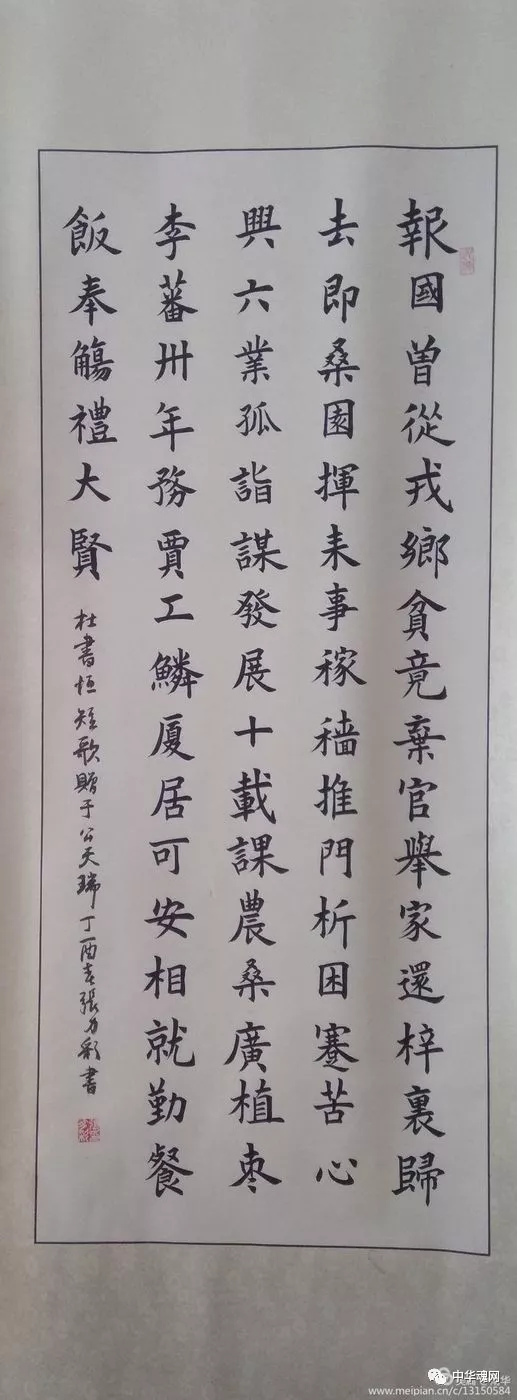 報國曾從戎鄉貧竟棄官舉家還梓裏歸
去即桑園揮耒事稼穡推門析困蹇苦心
興六業孤詣謀發展十載課農桑廣植枣
李蕃卅年務賈工鱗厦居可安相就勤餐
飯奉觴禮大賢
杜書恒短歌贈于公天瑞丁酉春張力彩書
中华魂网
www.meipian.cn/c/13150584